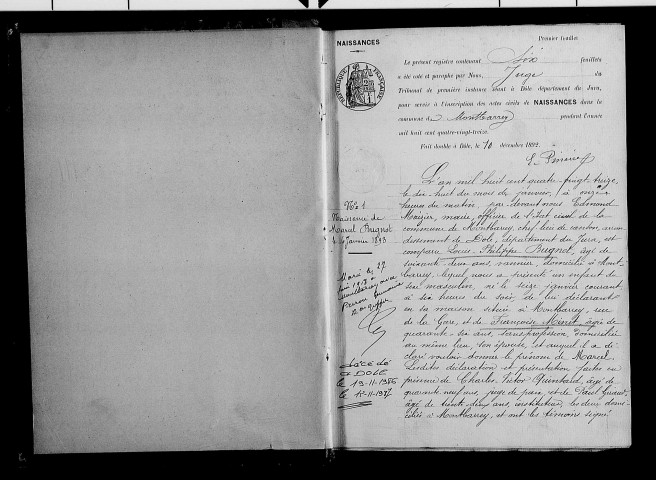 NAISSANCES
Premier feuillet
Le présent registre contenant Six feuillets
a été coté et paraphé par Nous, Juge du
Tribunal de première instance séant à Dôle département du Jura,
pour servir à l'inscription des actes civils de NAISSANCES dans la
commune de Montbarrey pendant l'année
mil huit cent quatre-vingt-treize.
Fait double à Dôle, le 10 décembre 1892.
RÉPUBLIQUE FRANÇAISE
L'an mil huit cent quatre-vingt-treize,
le dix-huit du mois de janvier, à onze
heures du matin, par devant nous Edmond
maire, officier de l'état civil de la
commune de Montbarrey, chef lieu de canton, arron-
dissement de Dole, département du Jura, est
comparu Louis Philippe Bugnot, âgé de
soixante-deux ans, vannier, domicilié à Mont-
barrey, lequel nous a présenté un enfant du
sexe masculin, né le seize janvier courant,
à six heures du soir, de lui déclarant
en sa maison située à Montbarrey, rue
de la Gare, et de Françoise Minet, âgée de
quarante-six ans, sans profession, domiciliée
au même lieu, son épouse, et auquel il a dé-
claré vouloir donner le prénom de Marcel.
Lesdites déclaration et présentation faites en
présence de Charles Victor Quintard, âgé de
quarante neuf ans, juge de paix, et de Paul
âgé de trente-deux ans, instituteur, les deux domi-
ciliés à Montbarrey, et ont les témoins signé
N° 1
Naissance de
Marcel Bugnot
Janvier 1893
Marié le 27
avec
décédé
à DOLE
le 19-11-1976